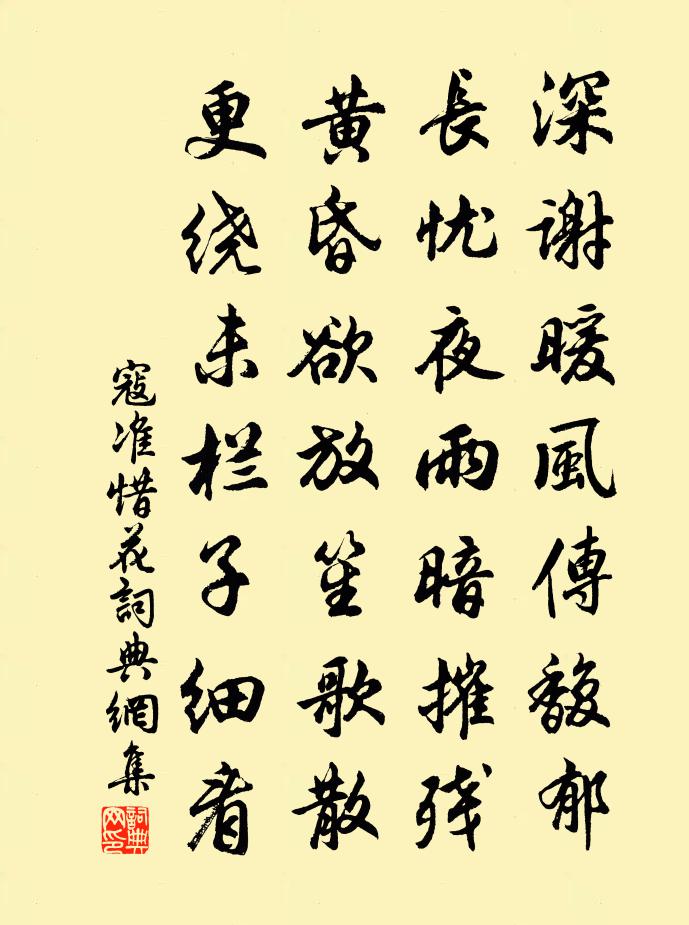 深謝暖風傳馥郁
長忧夜雨暗摧残
黃昏欲放笙歌散
更绕朱栏子细看
寇准惜花詞典網集
詞典
网印